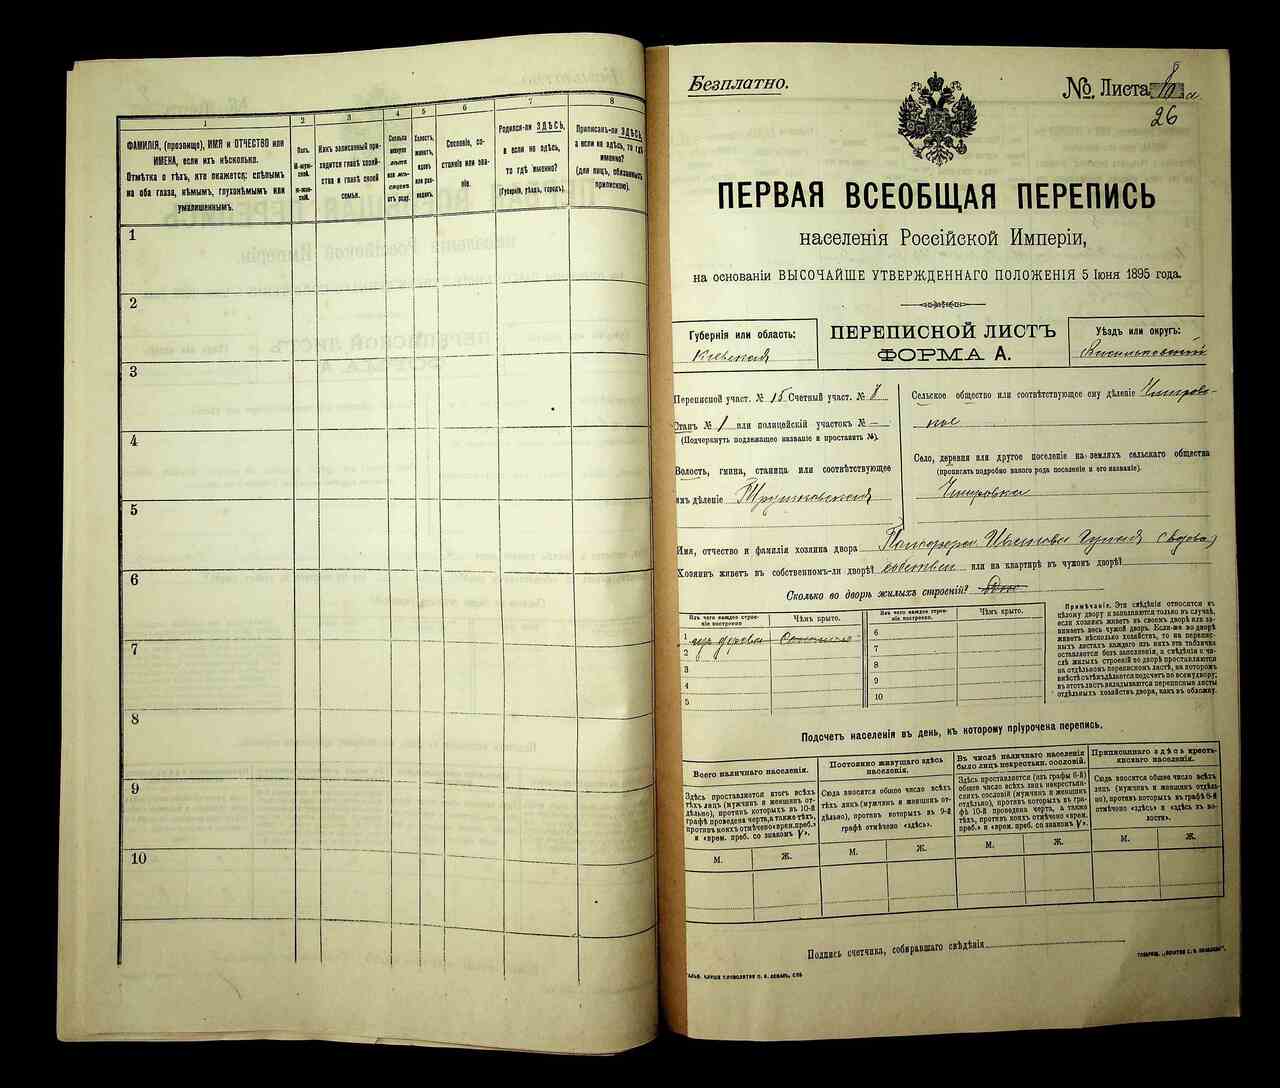 1
ФАМИЛІЯ, (прозвище), ИМЯ и ОТЧЕСТВО или
ИМЕНА, если ихъ нѣсколько.
Отмѣтка о тѣхъ, кто окажется: слѣпымъ
на оба глаза, нѣмымъ, глухонѣмымъ или
умалишеннымъ.
2
Полъ.
М-муж-
ской.
Ж-жен-
скій.
3
Какъ записанный при-
ходится главѣ хозяй-
ства и главѣ своей
семьи.
4
Сколько
минуло
лѣтъ
или мѣ-
сяцевъ
отъ роду.
5
Холостъ,
женатъ,
вдовъ
или раз-
веденъ.
6
Сословіе, со-
стояніе или зва-
ніе.
7
Родился-ли ЗДѢСЬ,
а если не здѣсь,
то гдѣ именно?
(Губернія, уѣздъ, городъ).
8
Приписанъ-ли ЗДѢСЬ,
а если не здѣсь, то гдѣ
именно?
(для лицъ, обязанныхъ
припискою).
1
2
3
4
5
6
7
8
9
10
Безплатно.
№ Листа а
26
ПЕРВАЯ ВСЕОБЩАЯ ПЕРЕПИСЬ
населенія Россійской Имперіи,
на основаніи ВЫСОЧАЙШЕ УТВЕРЖДЕННАГО ПОЛОЖЕНІЯ 5 Іюня 1895 года.
Губернія или область:
Кіевская
ПЕРЕПИСНОЙ ЛИСТЪ
ФОРМА А.
Уѣздъ или округъ:
Васильковскій
Переписной участ. № 15 Счетный участ. № 8
Станъ № 1 или полицейскій участокъ № —
(Подчеркнуть подлежащее названіе и проставить №).
Волость, гмина, станица или соотвѣтствующее
имъ дѣленіе Трушковская
Сельское общество или соотвѣтствующее ему дѣленіе Чмировс-
кое
Село, деревня или другое поселеніе на земляхъ сельскаго общества
(прописать подробно какого рода поселеніе и его названіе).
Чмировка
Имя, отчество и фамилія хозяина двора
Хозяинъ живетъ въ собственномъ-ли дворѣ? или на квартирѣ въ чужомъ дворѣ?
Сколько во дворѣ жилыхъ строеній?
Изъ чего каждое строе-
ніе построено
Чѣмъ крыто.
1 изъ дерева Соломою
2
3
4
5
Изъ чего каждое строе-
ніе построено
Чѣмъ крыто.
6
7
8
9
10
Примѣчаніе. Эти свѣдѣнія относятся къ
цѣлому двору и заполняются только въ случаѣ,
если хозяинъ живетъ въ своемъ дворѣ или за-
нимаетъ весь чужой дворъ. Если-же во дворѣ
живетъ нѣсколько хозяйствъ, то на перепис-
ныхъ листахъ каждаго изъ нихъ эта табличка
оставляется безъ заполненія, а свѣдѣнія о чи-
слѣ жилыхъ строеній во дворѣ проставляются
на отдѣльномъ переписномъ листѣ, на которомъ
вмѣстѣ съ тѣмъ дѣлается подсчетъ по всему двору;
въ этотъ листъ вкладываются переписные листы
отдѣльныхъ хозяйствъ двора, какъ въ обложку.
Подсчетъ населенія въ день, къ которому пріурочена перепись.
Всего наличнаго населенія.
Здѣсь проставляется итогъ всѣхъ
тѣхъ лицъ (мужчинъ и женщинъ от-
дѣльно), противъ которыхъ въ 10-й
графѣ проведена черта, а также тѣхъ,
противъ коихъ отмѣчено «врем. преб.»
и «врем. преб. со знакомъ V».
Постоянно живущаго здѣсь
населенія.
Сюда вносится общее число всѣхъ
тѣхъ лицъ (мужчинъ и женщинъ от-
дѣльно), противъ которыхъ въ 9-й
графѣ отмѣчено «здѣсь».
Въ числѣ наличнаго населенія
было лицъ некрестьян. сословій.
Здѣсь проставляется (изъ графы 6-й)
общее число всѣхъ лицъ некрестьян-
скихъ сословій (мужчинъ и женщинъ
отдѣльно), противъ которыхъ въ гра-
фѣ 10-й проведена черта, а также
тѣхъ, противъ коихъ отмѣчено «врем.
преб.» и «врем. преб. со знакомъ V».
Приписаннаго здѣсь кресть-
янскаго населенія.
Сюда вносится общее число всѣхъ
лицъ (мужчинъ и женщинъ отдѣль-
но), противъ которыхъ въ графѣ 8-й
отмѣчено «здѣсь» и «здѣсь въ во-
лости».
М.
Ж.
М.
Ж.
М.
Ж.
М.
Ж.
Подпись счетчика, собиравшаго свѣдѣнія